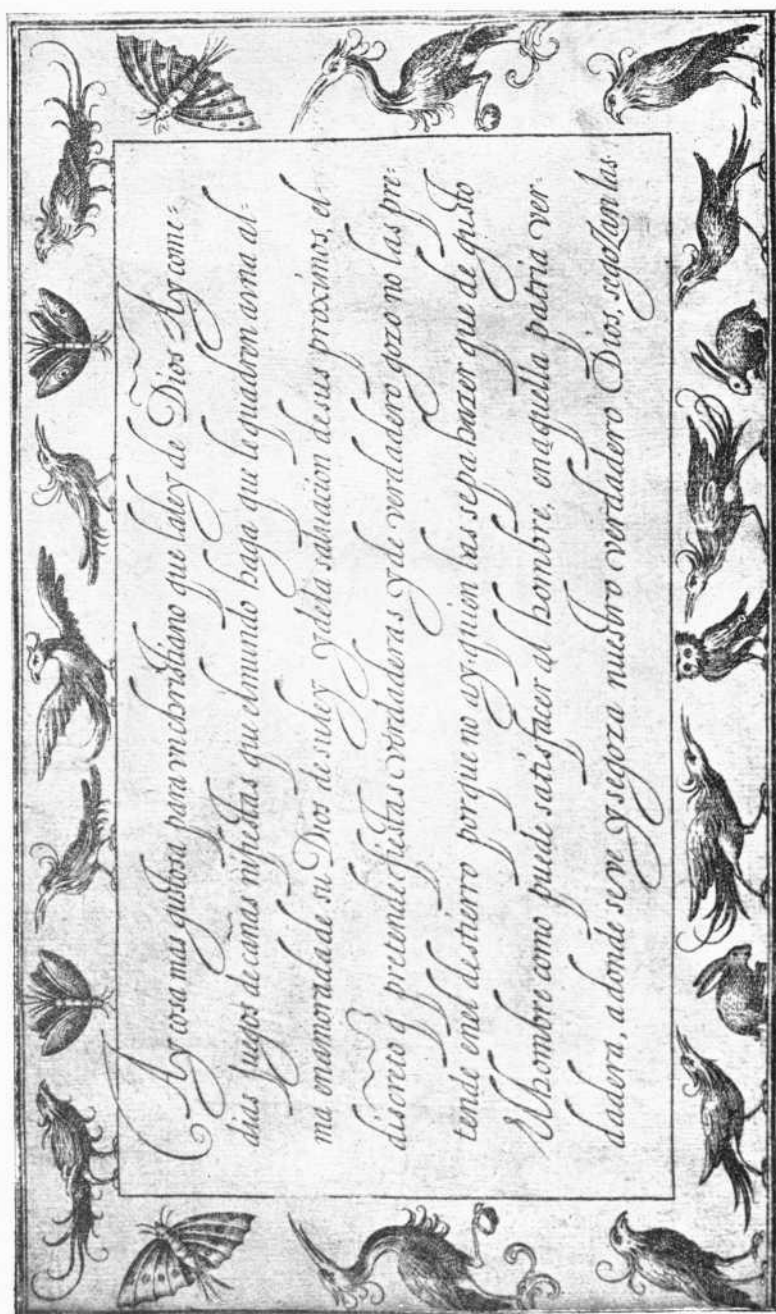 Ay cosa mas gustosa para vn christiano que la ley de Dios Ay come-
dias Juegos de canas ni fiestas que el mundo haga que le quadren a vna al-
ma enamorada de su Dios de su ley y de la saluacion de sus proximos, el
discreto q pretende fiestas verdaderas y de verdadero gozo no las pre-
tende enel destierro porque no ay quien las sepa hazer que de gusto
Al hombre como puede satisfacer al hombre, en aquella patria ver-
dadera, a donde se ve y se goza nuestro verdadero Dios, se gozan las